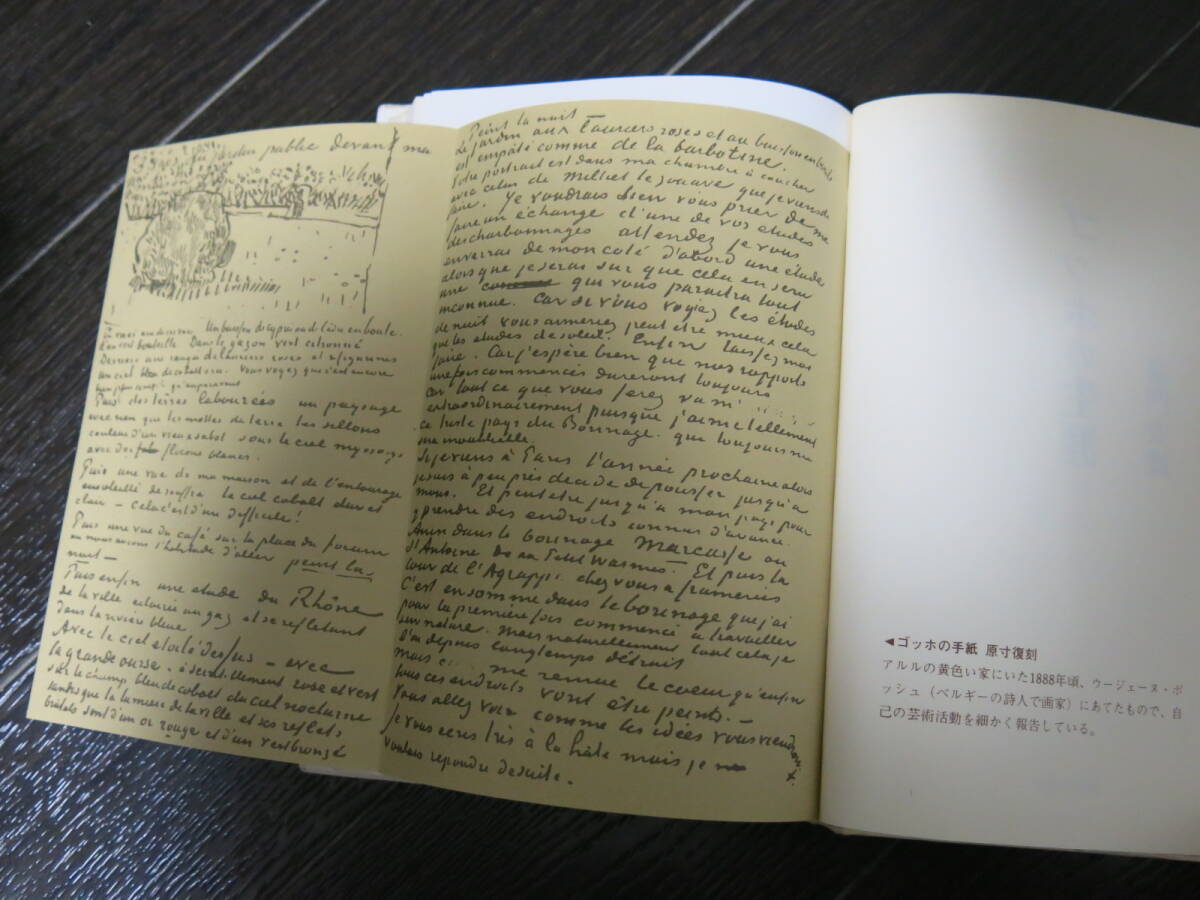 jardin public devant ma
Un buisson de cyprès de l'édu en boule.
Dans le gazon vert citronné
Derrière une rangée de lauriers roses et 2 figurines
un ciel bleu de cobalt cru. Vous voyez que c'est encore
Puis des terres labourées un paysage
avec rien que les mottes de terre les sillons
couleur d'un vieux sabot sous le ciel myosotys
avec des flocons blancs.
Puis une vue de ma maison et de l'entourage
ensoleillé de souffre le ciel cobalt dur et
clair – cela c'est d'un difficile!
Puis une vue du café sur la place du forum
ou nous avons l'habitude d'aller peint la
nuit –
Puis enfin une etude du Rhône
de la ville eclairée au gaz et se reflétant
dans la rivière bleue.
Avec le ciel etoilé dessus – avec
la grande ourse – à scintillement rose et vert
sur le champ bleu de cobalt du ciel nocturne
tandis que la lumiere de la ville et ses reflets
brutals sont d'un or rouge et d'un vert bronzé
Peint la nuit –
Le jardin aux lauriers roses et au buisson en boule
est empâté comme de la barbotine.
Votre portrait est dans ma chambre à coucher
avec celui de Milliet le zouave que je viens de
faire. Je voudrais bien vous prier de me
faire un échange d'une de vos etudes
des charbonnages attendez je vous
enverrai de mon coté d'abord une étude
alors que je serai sur que cela en sera
une que vous paraitra tout
inconnue. Car si vous voyiez les études
de nuit vous aimeriez peut etre mieux cela
que les etudes de soleil. Enfin laissez moi
faire. Car j'espère bien que nos rapports
une fois commencés dureront toujours
car tout ce que vous ferez va m'
extraordinairement puisque j'aime tellement
ce triste pays du Borinage. que toujours me
sera inoubliable.
Si je viens à Paris l'année prochaine alors
je suis à peu près decidé de pousser jusqu'à
mons. Et peut etre jusqu'à mon pays pour
y prendre des endroits connus d'avance.
Ainsi dans le borinage Marcasse ou
St Antoine Petit Wasmes. Et puis la
cour de l'Agrappe. chez vous à frameries
C'est en somme dans le borinage que j'ai
pour la première fois commencé à travailler
sur nature. Mais naturellement tout cela je
l'ai depuis longtemps détruit
Mais me remue le coeur qu'enfin
tous ces endroits vont être peints. –
Vous allez voir comme les idées vous viendront
je vous ecris tres à la hâte mais je
voulais repondre de suite.
◀ゴッホの手紙 原寸復刻
アルルの黄色い家にいた1888年頃、ウージェーヌ・ボ
ッシュ（ベルギーの詩人で画家）にあてたもので、自
己の芸術活動を細かく報告している。